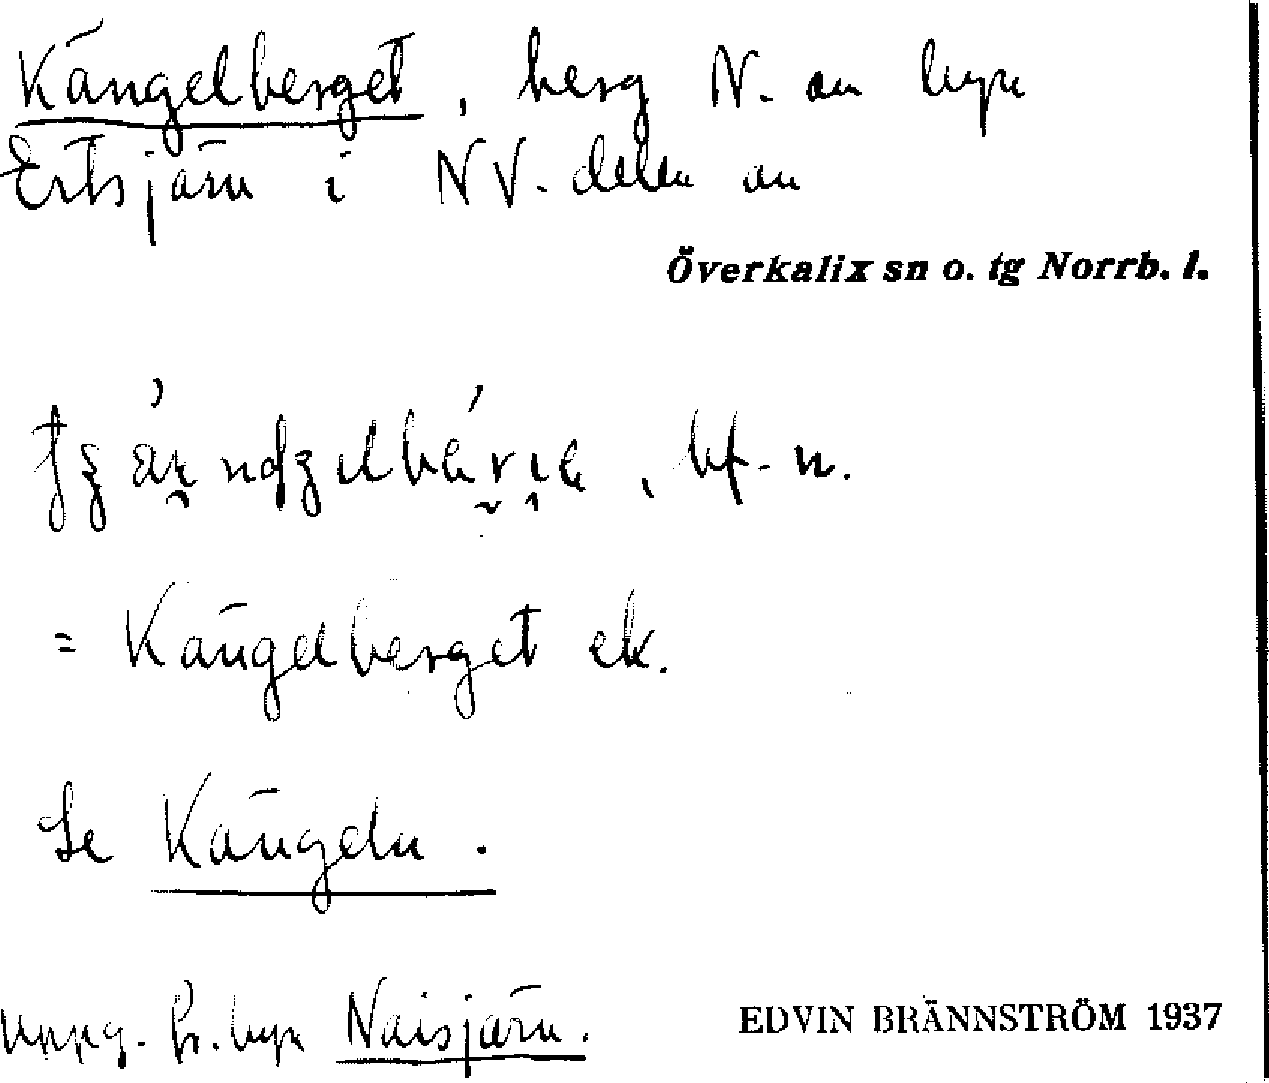 Kängelberget, berg N. om byn
Ertsjärn i NV. delen av
Överkalix sn o. tg Norrb. l.
, bf. n.
= Kängelberget ek.
Se Kängeln.
Uppg. fr. byn Naisjärn.
EDVIN BRÄNNSTRÖM 1937